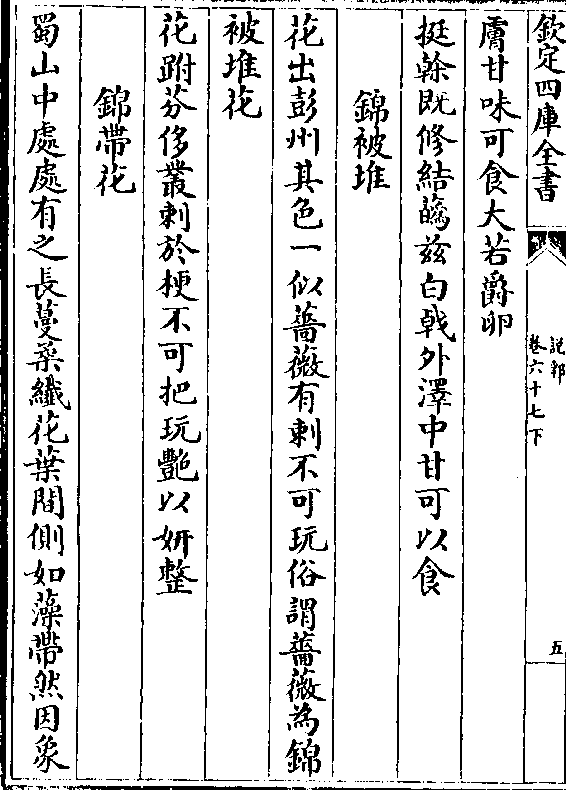 欽定四庫全書
說郛
卷六十七下
五
膚甘味可食大若爵卵
挺榦既修結蘤兹白戟外澤中甘可以食
錦被堆
花出彭州其色一似薔薇有刺不可玩俗謂薔薇為錦
被堆花
花跗芬侈叢刺於梗不可把玩艶以妍整
錦帶花
蜀山中處處有之長蔓柔纖花葉間側如藻帶然因象